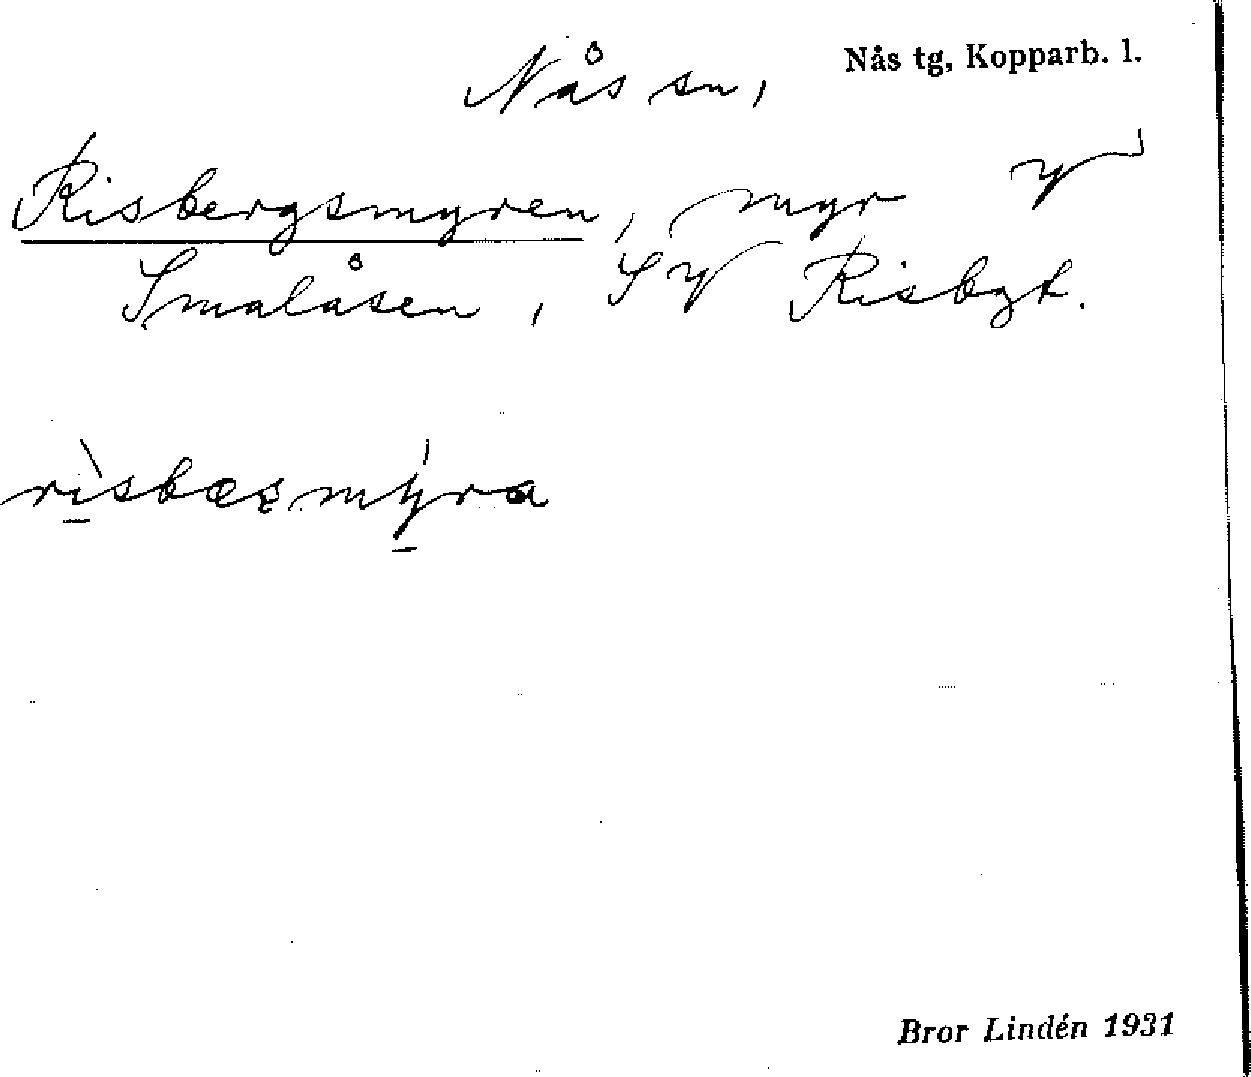 Nås tg, Kopparb. l.
Nås sn,
Risbergsmyren, myr V
Smalåsen, SV Risbgt.
rìsbæsmýra
Bror Lindén 1931